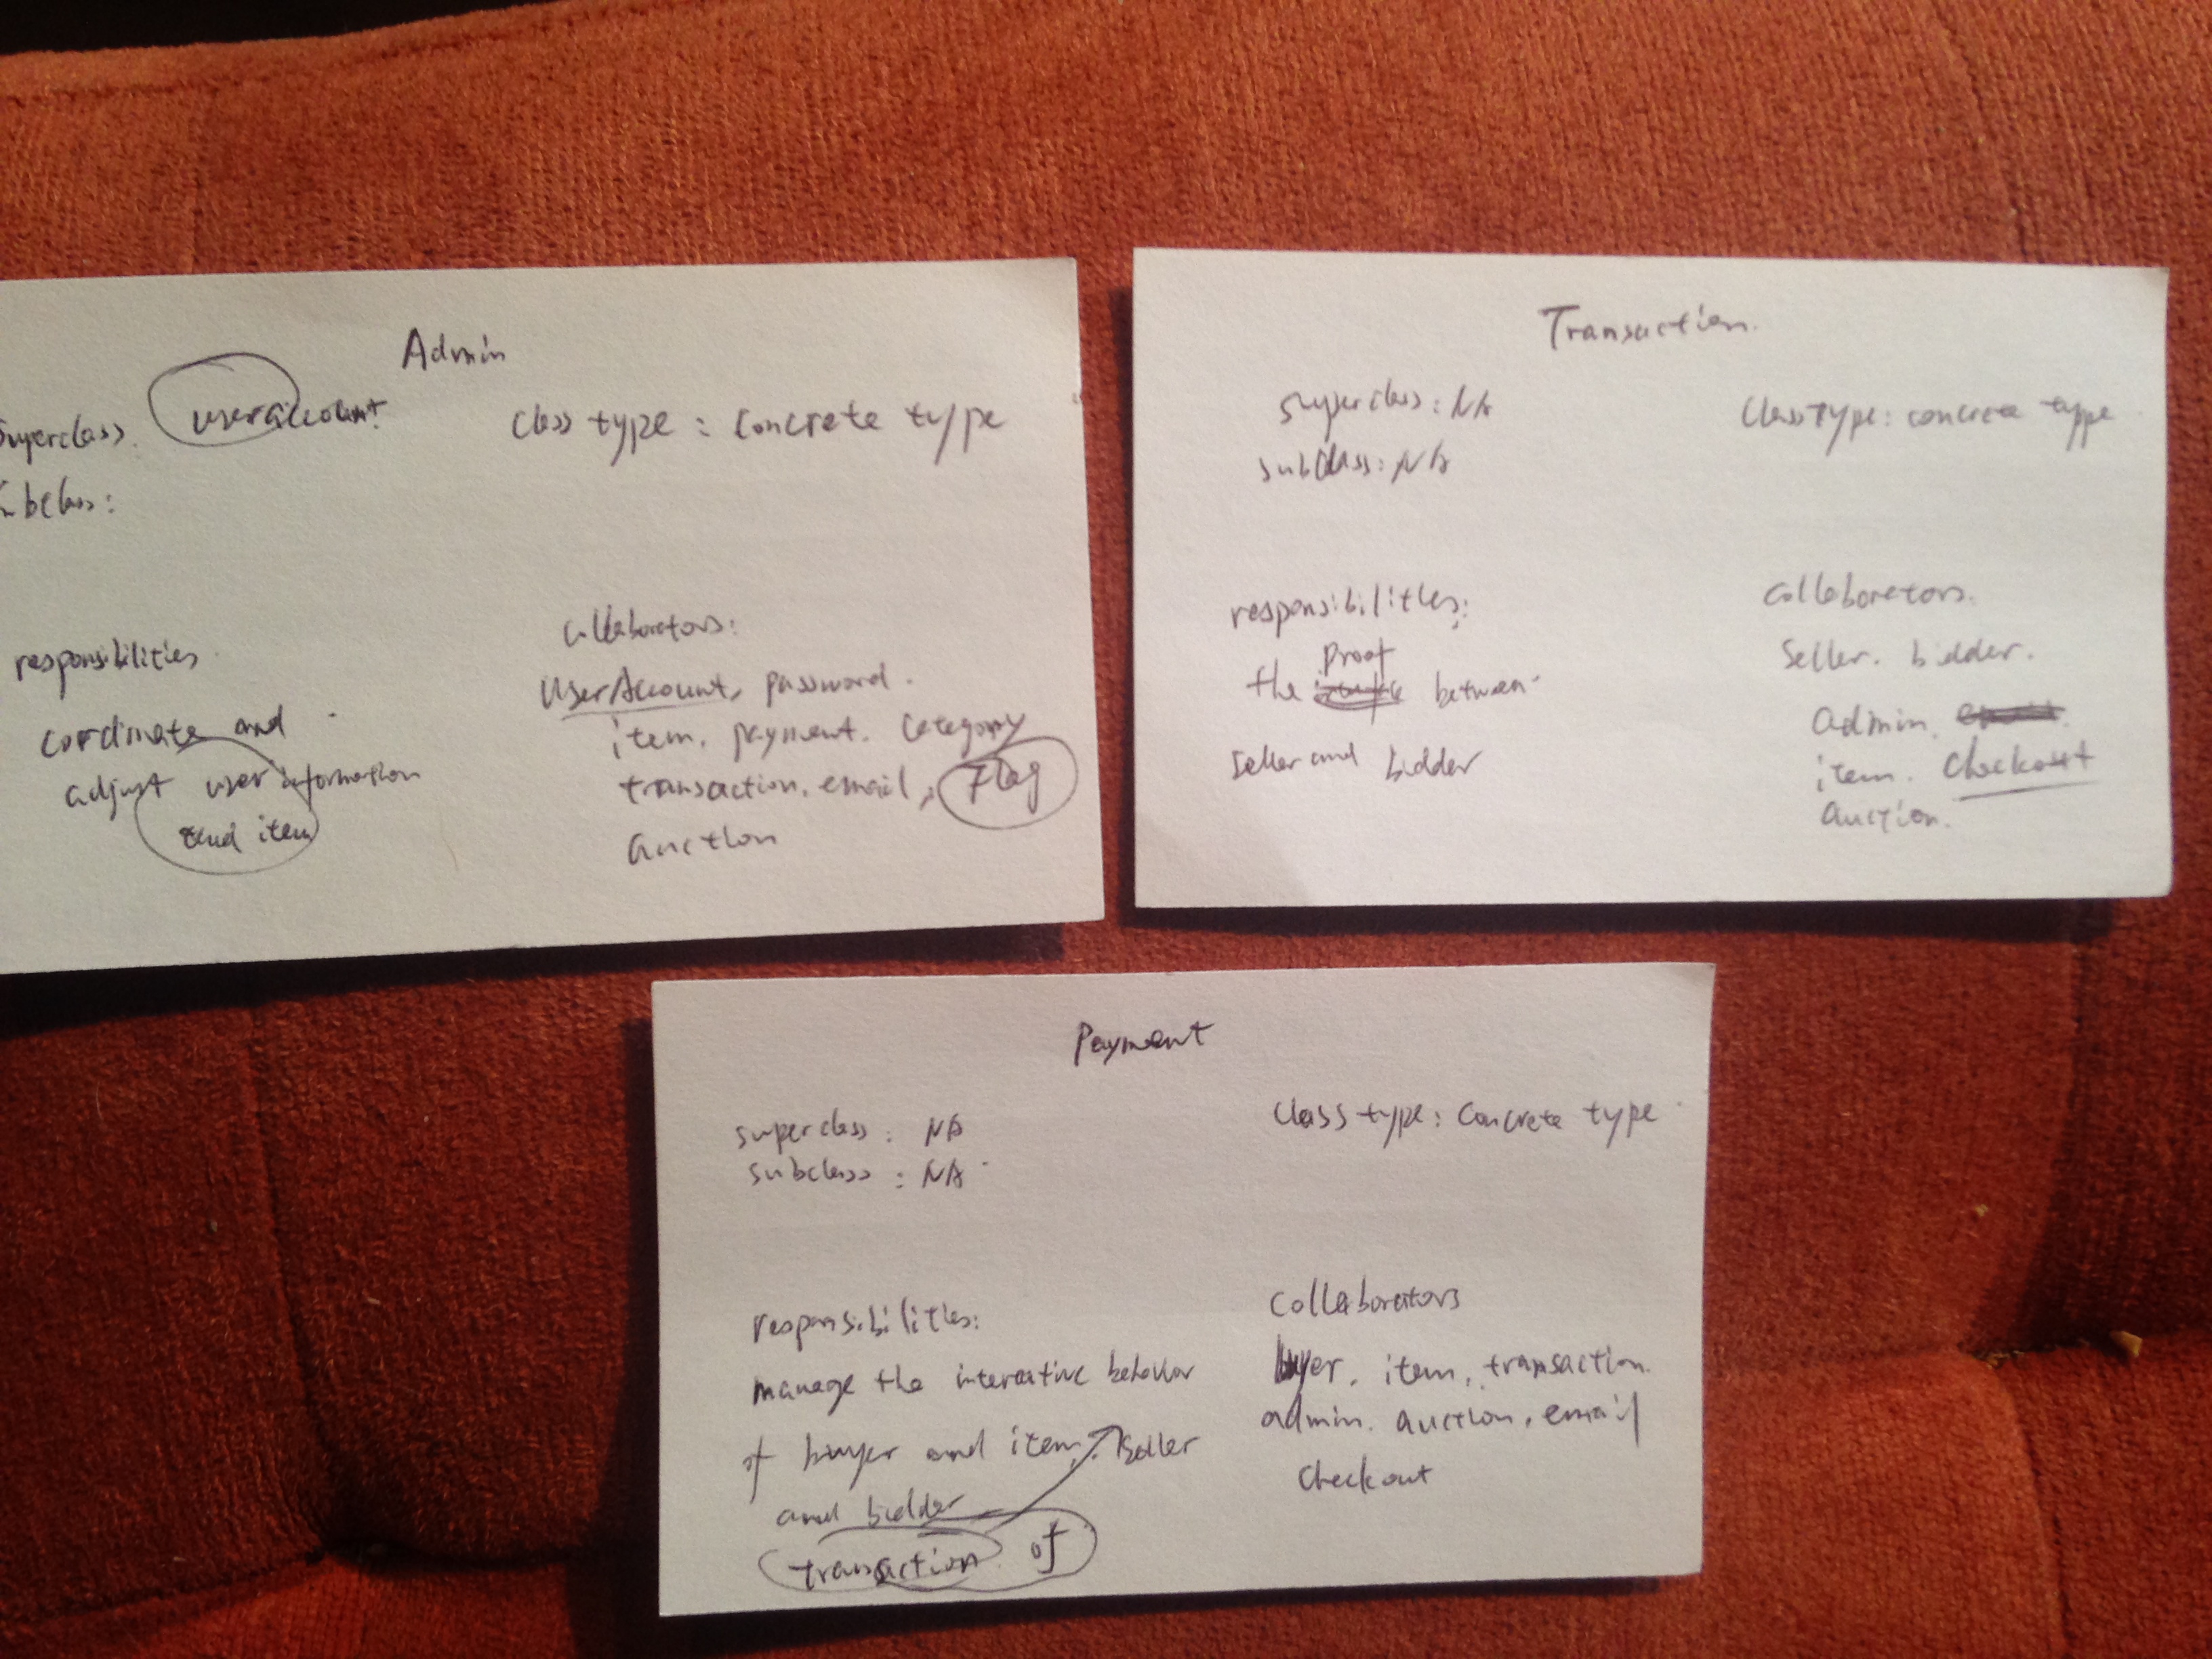 Admin
Superclass. useraccount.
class type : concrete type
subclass:
responsibilities
coordinate and
adjust user information
and item
collaborators:
UserAccount, password.
item. payment. category
transaction. email, Flag
auction
Transaction.
superclass: NA
subclass: NA
class type: concrete type
responsibilities:
Proof
the between
seller and bidder
collaborators.
seller. bidder.
admin.
item. checkout
auction.
Payment
superclass : NA
subclass : NA
class type: concrete type
responsibilities:
manage the interactive behavior
of buyer and item. seller
and bidder
transaction of
collaborators
buyer, item, transaction.
admin. auction, email
checkout